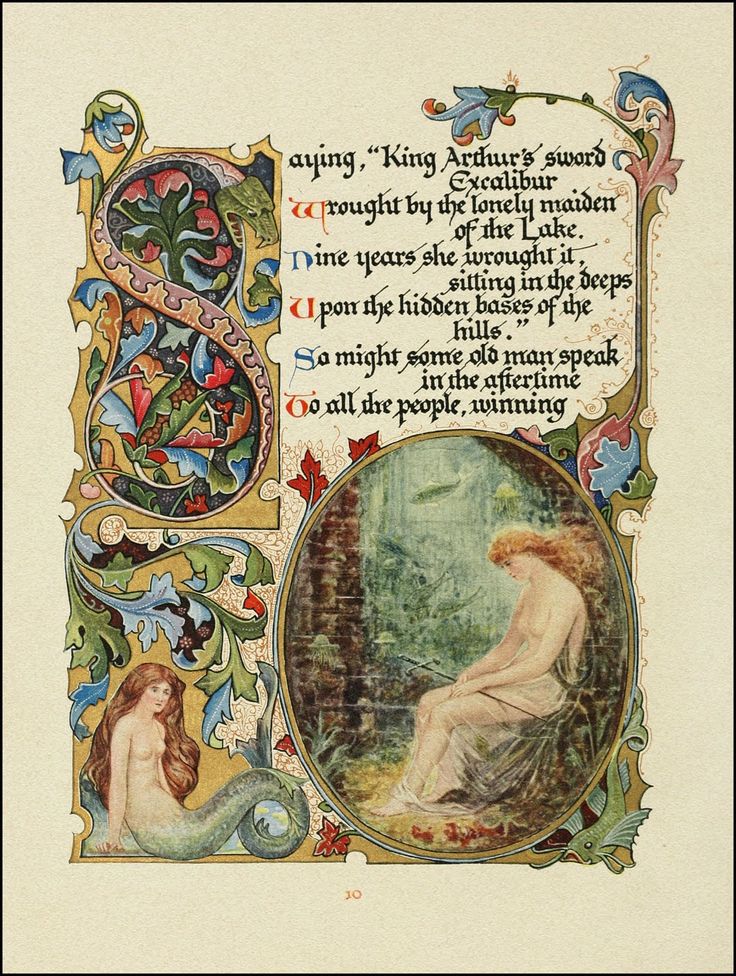 Saying, "King Arthur's sword
Excalibur
Wrought by the lonely maiden
of the Lake.
Nine years she wrought it,
sitting in the deeps
Upon the hidden bases of the
hills."
So might some old man speak
in the aftertime
To all the people, winning
10